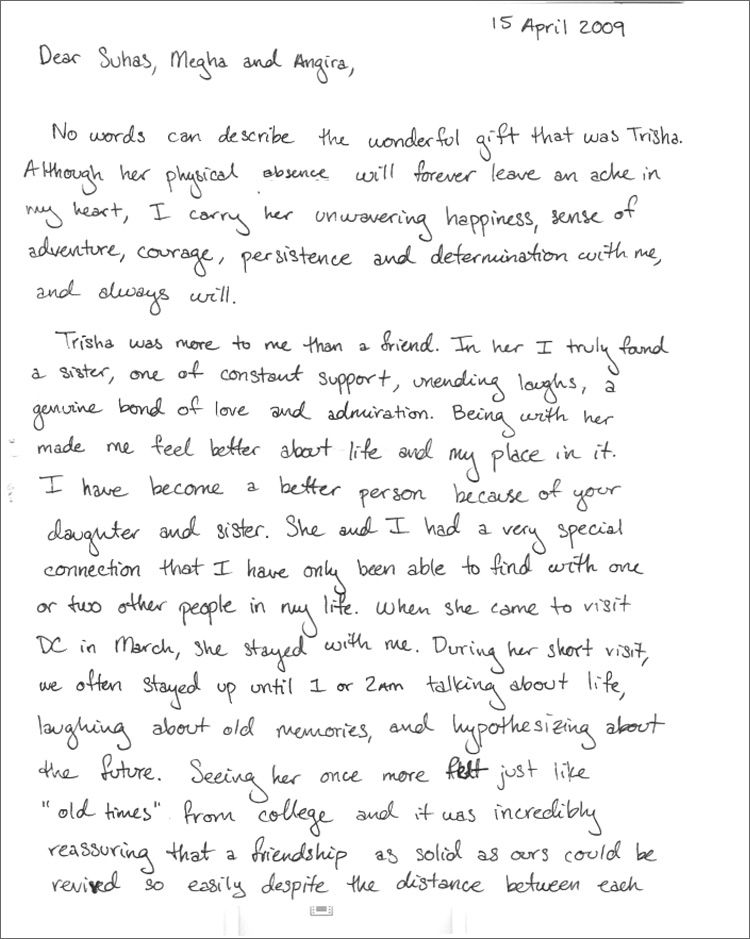 15 April 2009
Dear Suhas, Megha and Angira,
No words can describe the wonderful gift that was Trisha.
Although her physical absence will forever leave an ache in
my heart, I carry her unwavering happiness, sense of
adventure, courage, persistence and determination with me,
and always will.
Trisha was more to me than a friend. In her I truly found
a sister, one of constant support, unending laughs, a
genuine bond of love and admiration. Being with her
made me feel better about life and my place in it.
I have become a better person because of your
daughter and sister. She and I had a very special
connection that I have only been able to find with one
or two other people in my life. When she came to visit
DC in March, she stayed with me. During her short visit,
we often stayed up until 1 or 2am talking about life,
laughing about old memories, and hypothesizing about
the future. Seeing her once more felt just like
"old times" from college and it was incredibly
reassuring that a friendship as solid as ours could be
revived so easily despite the distance between each